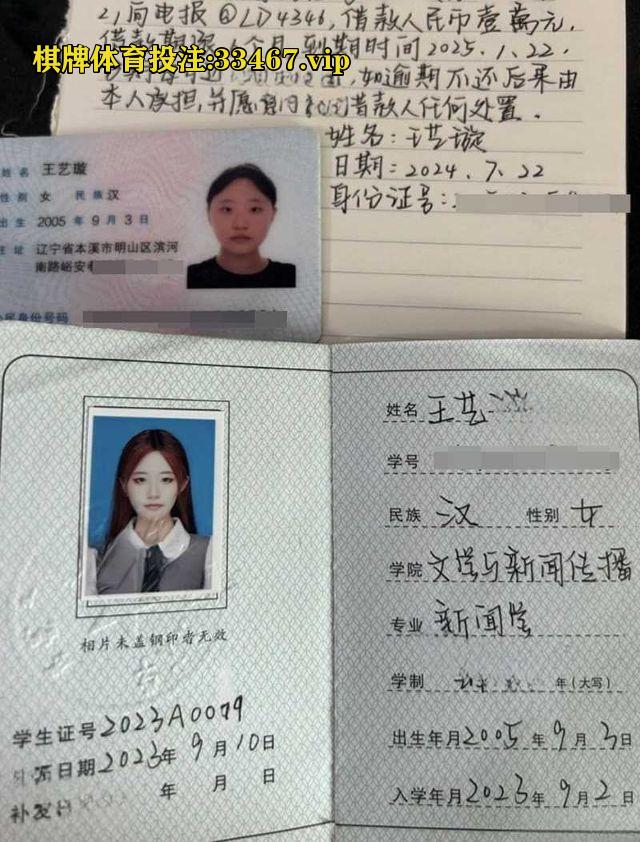 2）向电报@LD4346，借款人民币壹萬元，
棋牌体育投注:33467.vip
到期时间2025.1.22，
如逾期不还后果由
本人承担，并愿意
借款人任何处置。
姓名：王艺璇
日期：2024.7.22
身份证号：
姓名 王艺璇
性别 女 民族 汉
出生 2005 年 9 月 3 日
住址 辽宁省本溪市明山区滨河
南路峪安
公民身份号码
相片未盖钢印者无效
学生证号2023A0079
日期2023年9月10日
补发日 年 月 日
姓名 王艺
学号
民族 汉 性别 女
学院 文学与新闻传播
专业 新闻学
学制 年（大写）
出生年月2005年9月3日
入学年月2023年9月2日